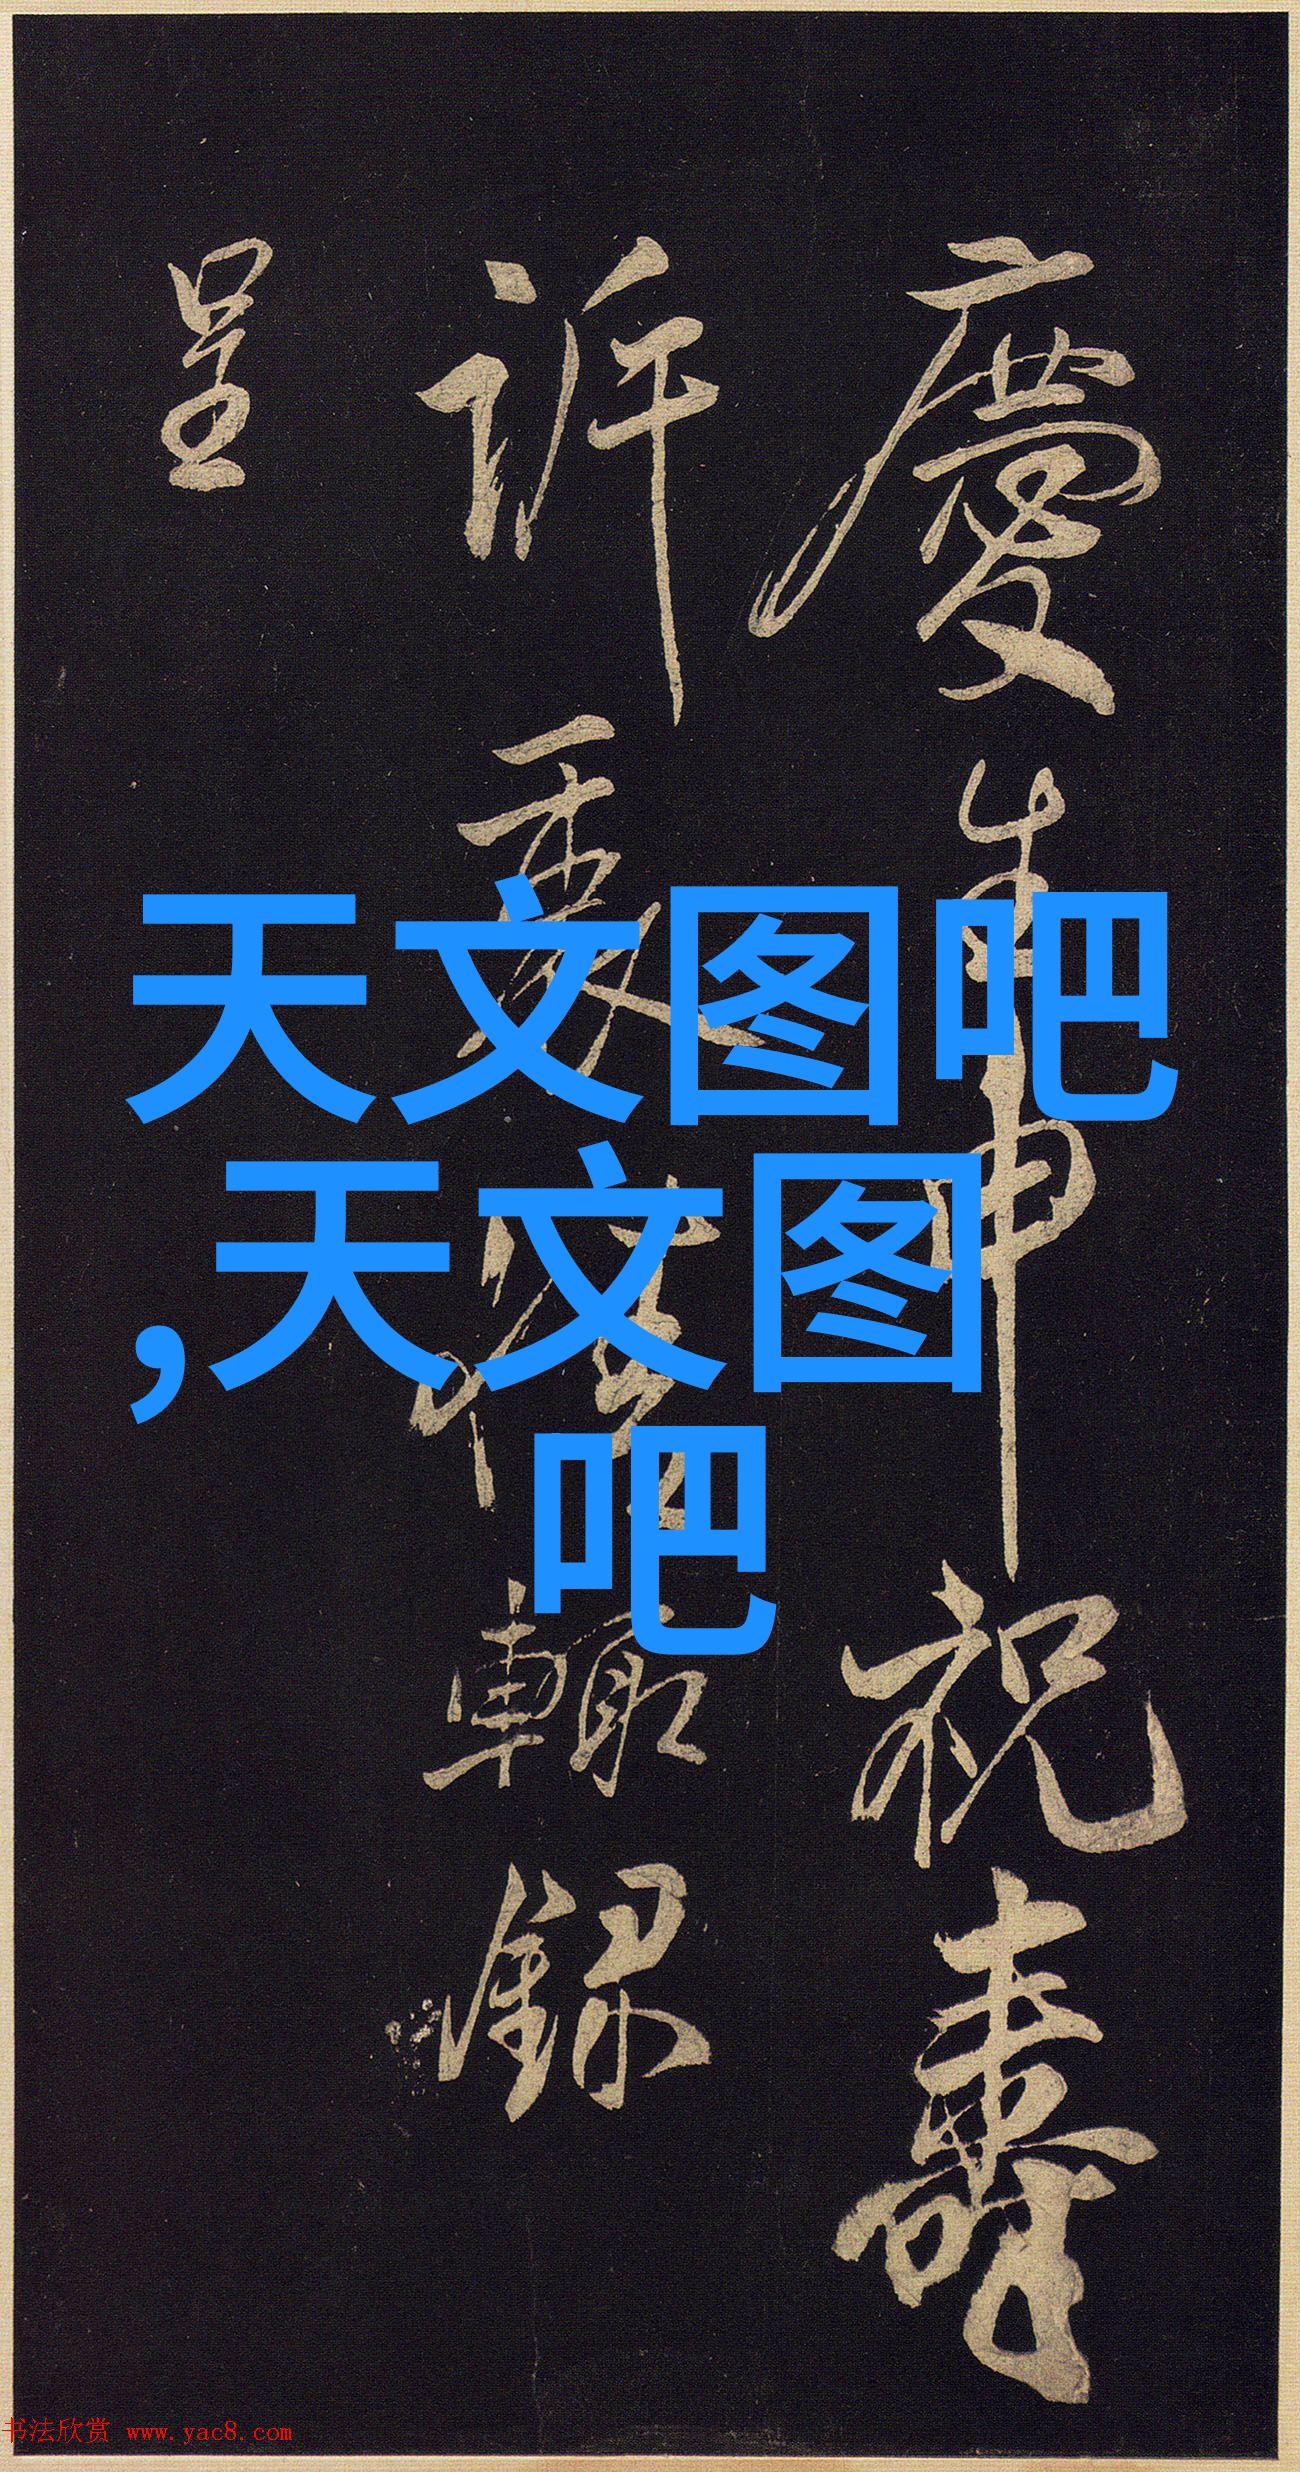 慶生申祝壽
輙錄
呈
天文图吧
,天文图
吧
书法欣赏 www.yac8.com